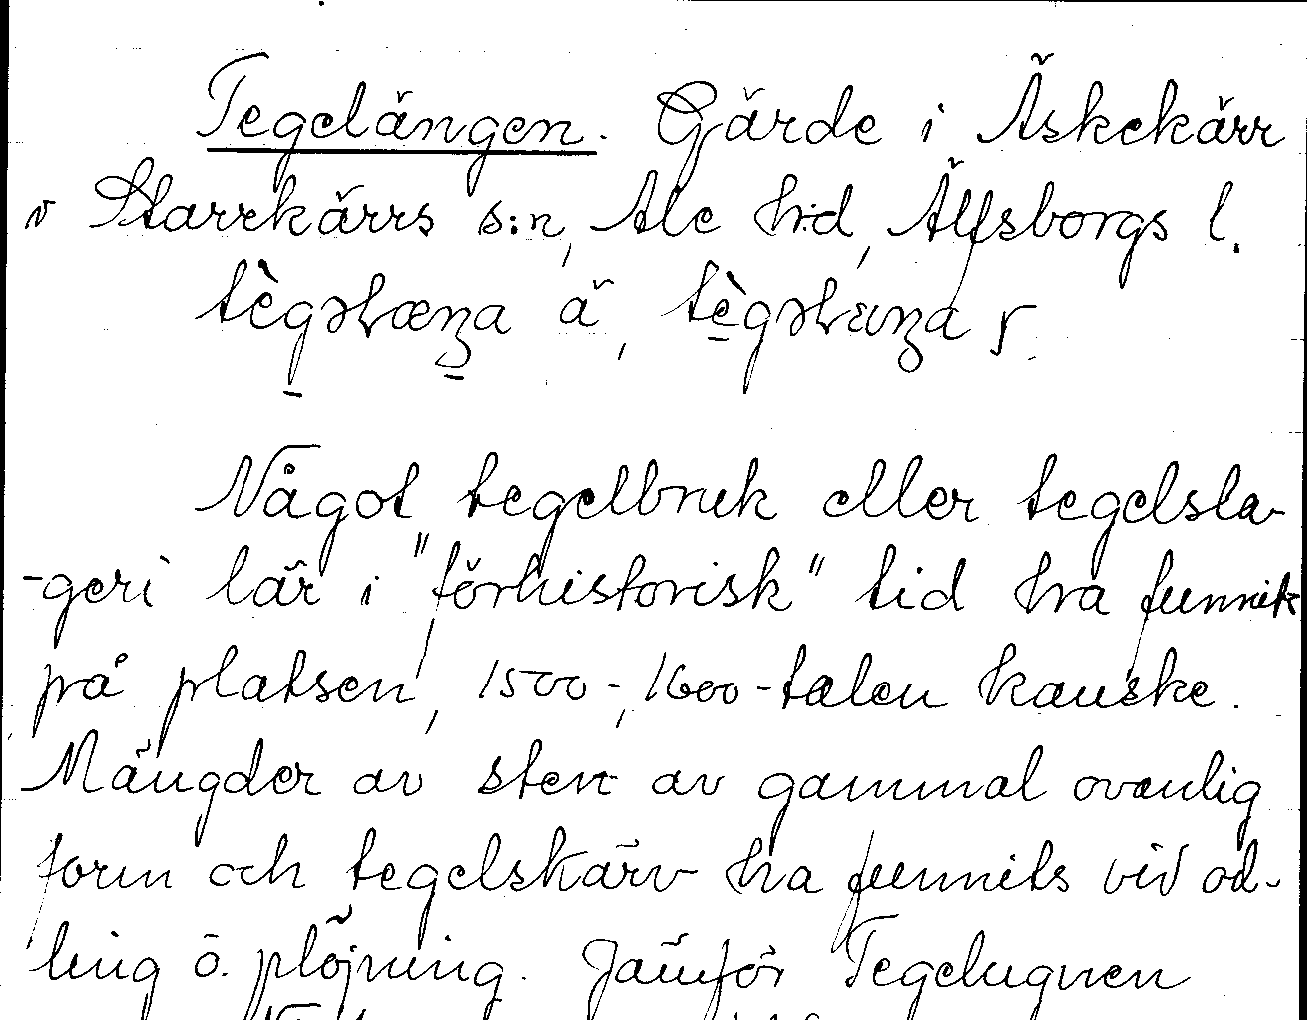 Tegelängen. Gärde i Äskekärr
v Starrkärrs s:n, Ale h:d, Älfsborgs l.
ä, y.
Något tegelbruk eller tegelsla-
-geri lär i "förhistorisk" tid ha funnits
på platsen, 1500-, 1600-talen kanske.
Mängder av sten av gammal ovanlig
form och tegelskärv ha funnits vid od-
ling o. plöjning. Jämför Tegelugnen